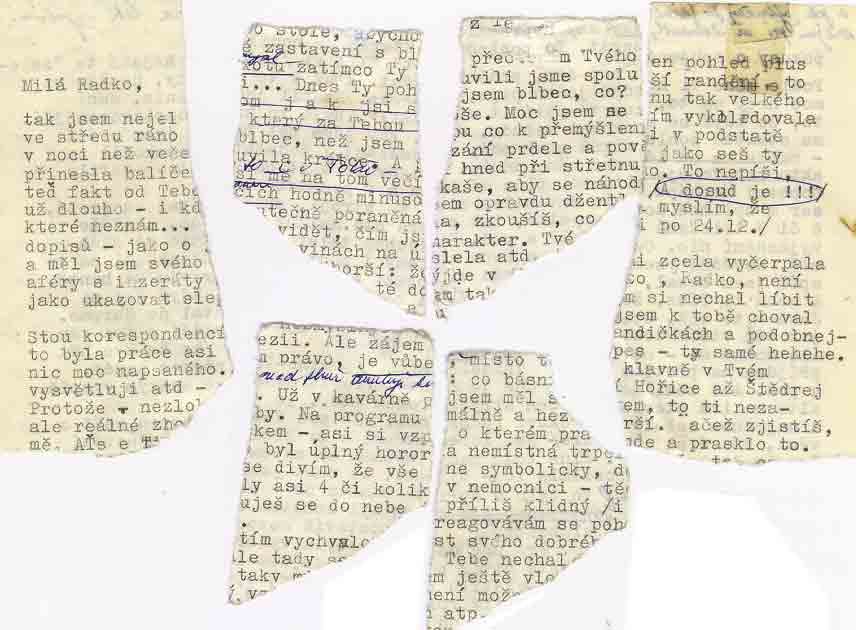 Milá Radko,
tak jsem nejel
ve středu ráno
v noci než veče
přinesla balíče
teď fakt od Tebe
už dlouho - i kd
které neznám...
dopisů - jako o
a měl jsem svého
aféry s inzeráty
jako ukazovat sle
Stou korespondenc
to byla práce asi
nic moc napsaného.
vysvětluji atd -
Protože - nezlo
ale reálné zho
mě. Ať s e T
o stole, abycho
zastavení s bl
kotu zatímco Ty
i... Dnes Ty poh
om j a k jsi s
který za Tebou
blbec, než jsem
uvila k A
si mě na tom věčí
cích hodně minuso
utečně poraněná
vidět, čím js
vinách na ú
horší: že
té do
a
z le
přede m Tvého
uvili jsme spolu
jsem blbec, co?
oše. Moc jsem se
ou co k přemýšlen
zání prdele a pově
hned při střetnu
kaše, aby se náhod
sem opravdu džentl
a, zkoušíš, co
harakter. Tvé
slela atd
ýjde v
m tak
en pohled plus
ší randění, to
nu tak velkého
ím vykoledovala
i v podstatě
jako seš ty
o. To nepíši,
A dosud je !!!
myslím, že
i po 24.12./
i zcela vyčerpala
o , Radko, není
m si nechal líbit
jsem k tobě choval
andičkách a podobnej-
pes - ty samé hehehe.
klavně v Tvém
í Hořice až Štědrej
em, to ti neza-
rší. ačez zjistíš,
de a prasklo to.
ezii. Ale zájem
m právo, je vůbe
. Už v kavárně p
by. Na programu
kem - asi si vzp
byl úplný horor
se divím, že vše
ly asi 4 či kolik
uješ se do nebe
.
tím vychval
le tady se
taky m
, místo t
: co básn
jsem měl s
málně a hez
o kterém pra
a nemístná trp
ne symbolicky, d
v nemocnici - tě
příliš klidný /i
reagovávám se poh
st svého dobréh
Tebe nechal
m ještě vlo
není mož
atp.